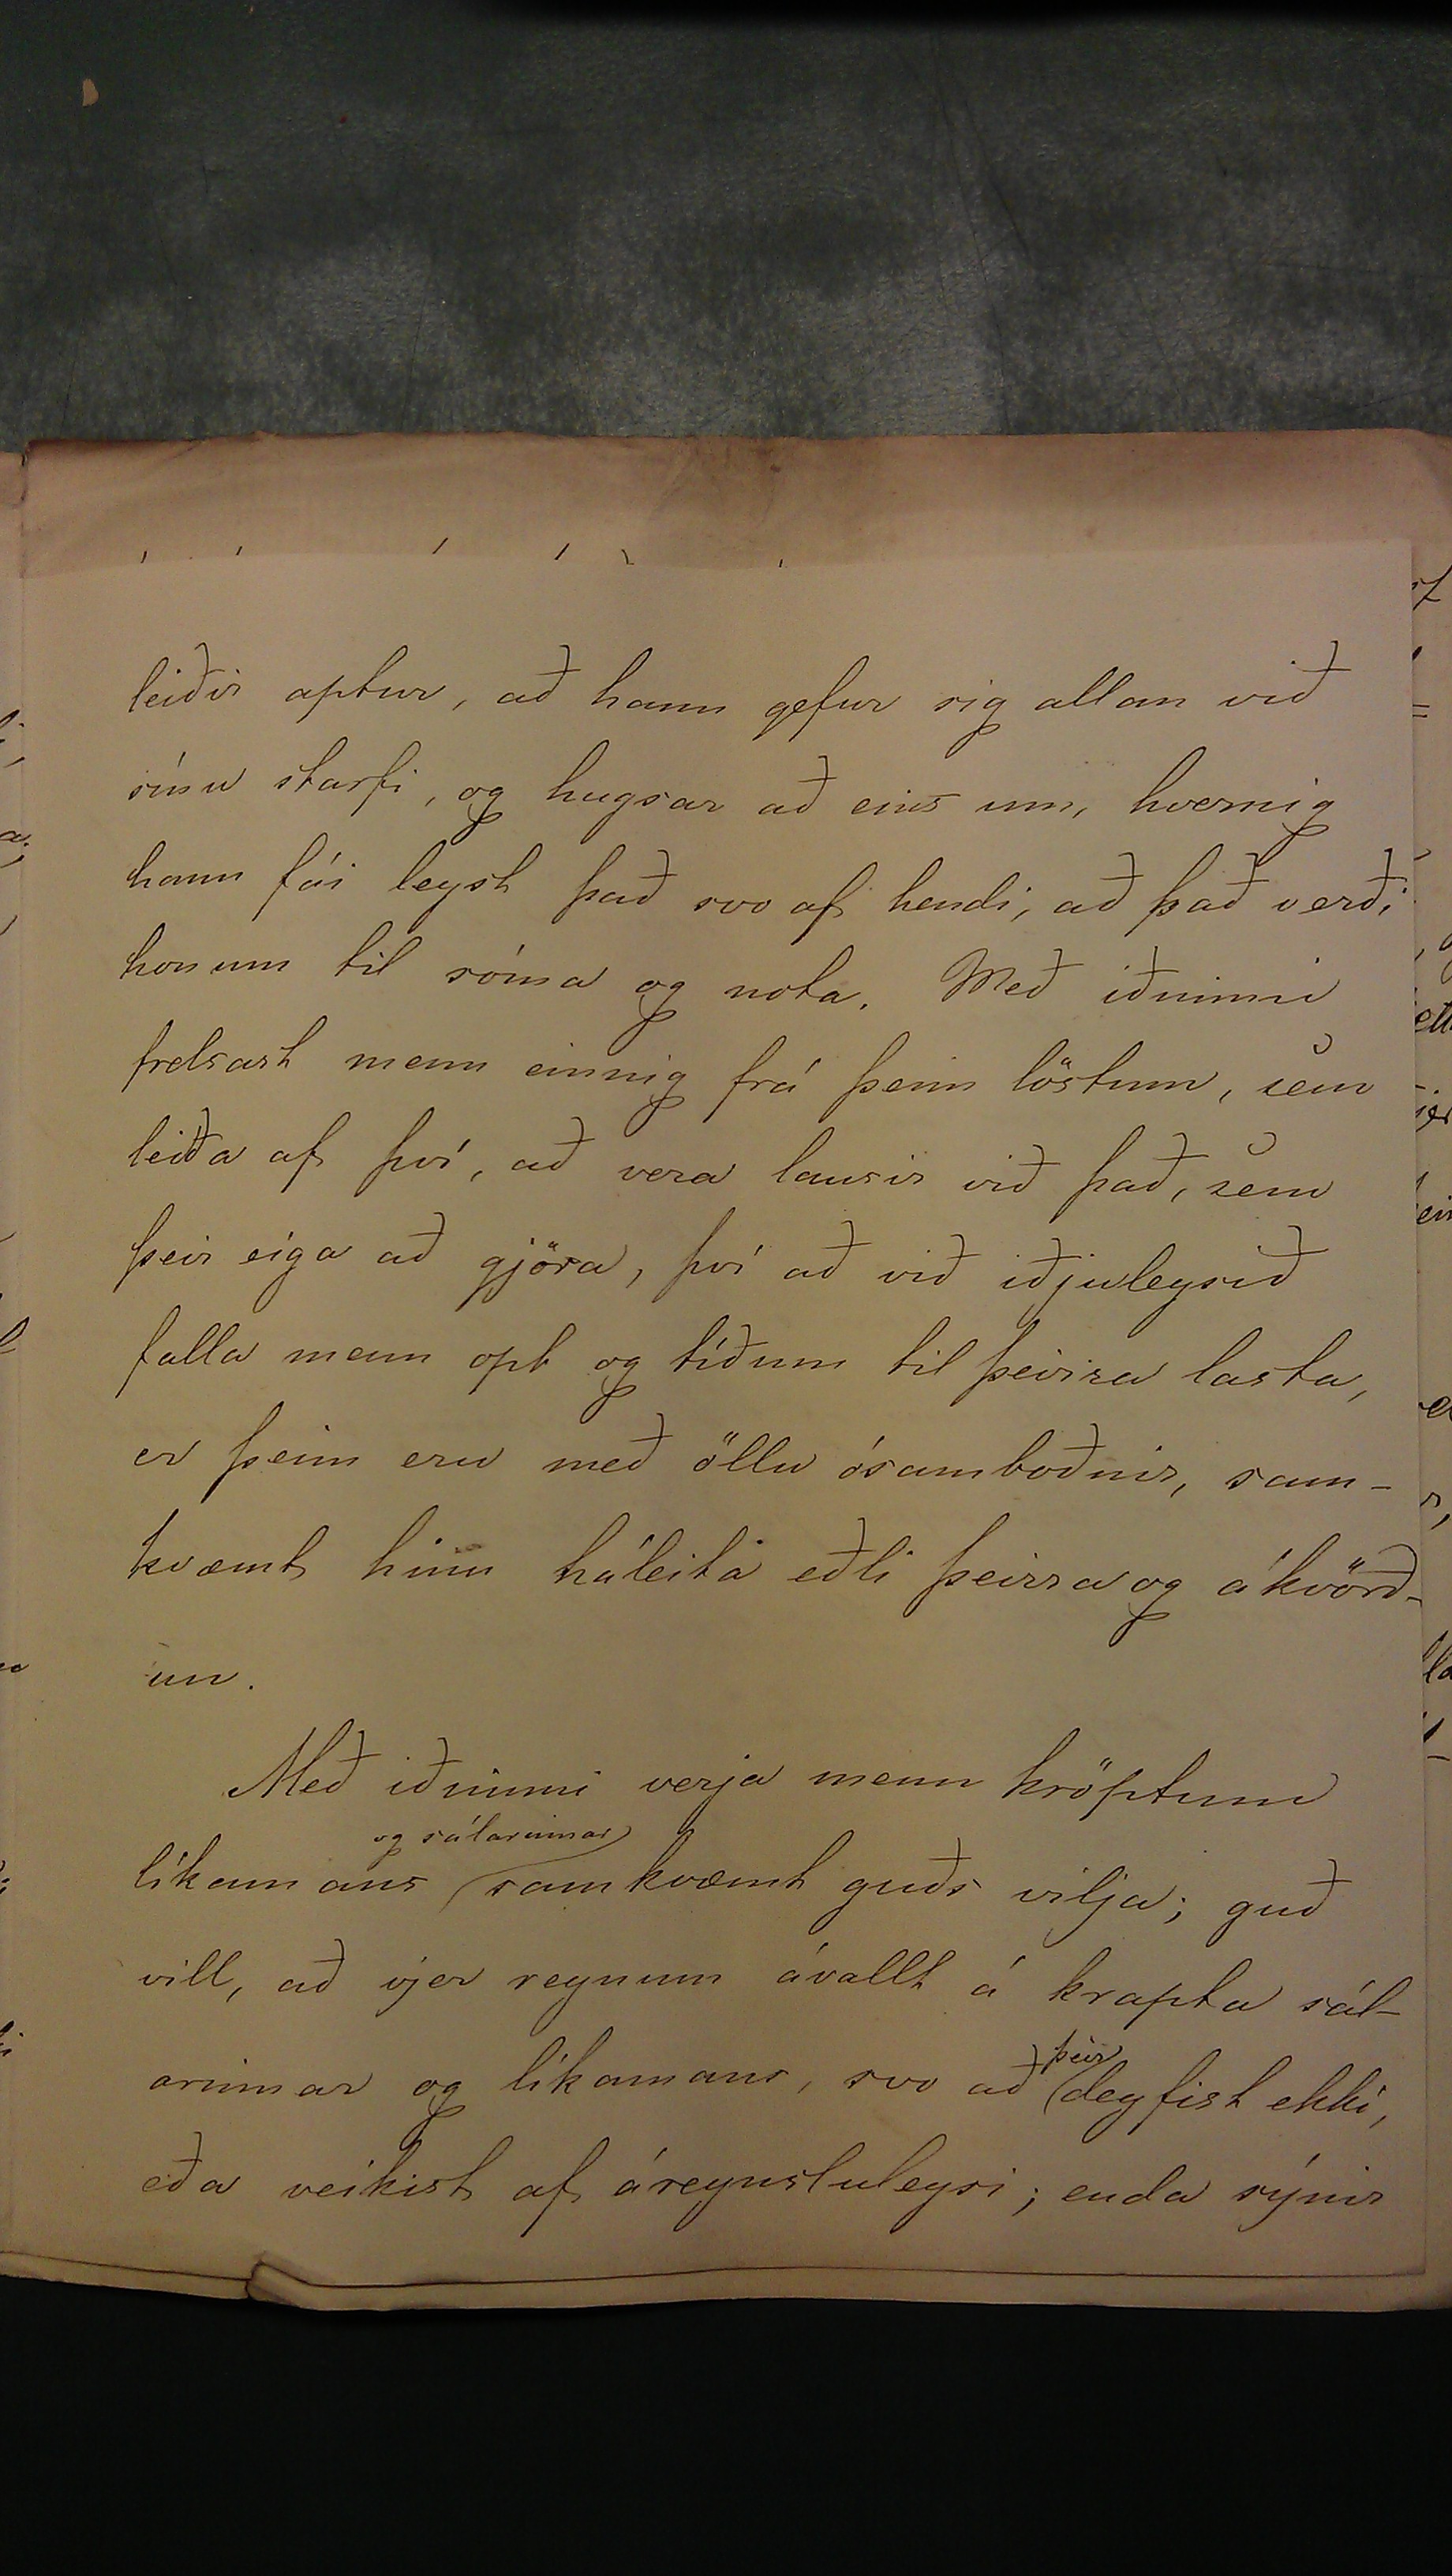 leiðir aptur, að hann gefur sig allan við
sínu starfi, og hugsar að eins um, hvernig
hann fái leyst það svo af hendi, að það verði
honum til sóma og nota. Með iðninni
frelsast menn einnig frá þeim löstum, sem
leiða af því, að vera lausir við það, sem
þeir eiga að gjöra, því að við iðjuleysið
falla menn opt og tíðum til þeirra lasta,
er þeim eru með öllu ósamboðnir, sam-
kvæmt hinu háleita eðli þeirra og ákvörð-
un.
Með iðninni verja menn kröptum
og sálarinnar
líkamans samkvæmt guðs vilja; guð
vill, að vjer reynum ávallt á krapta sál-
þeir
arinnar og líkamans, svo að deyfist ekki,
eða veikist af áreynsluleysi; enda sýnir